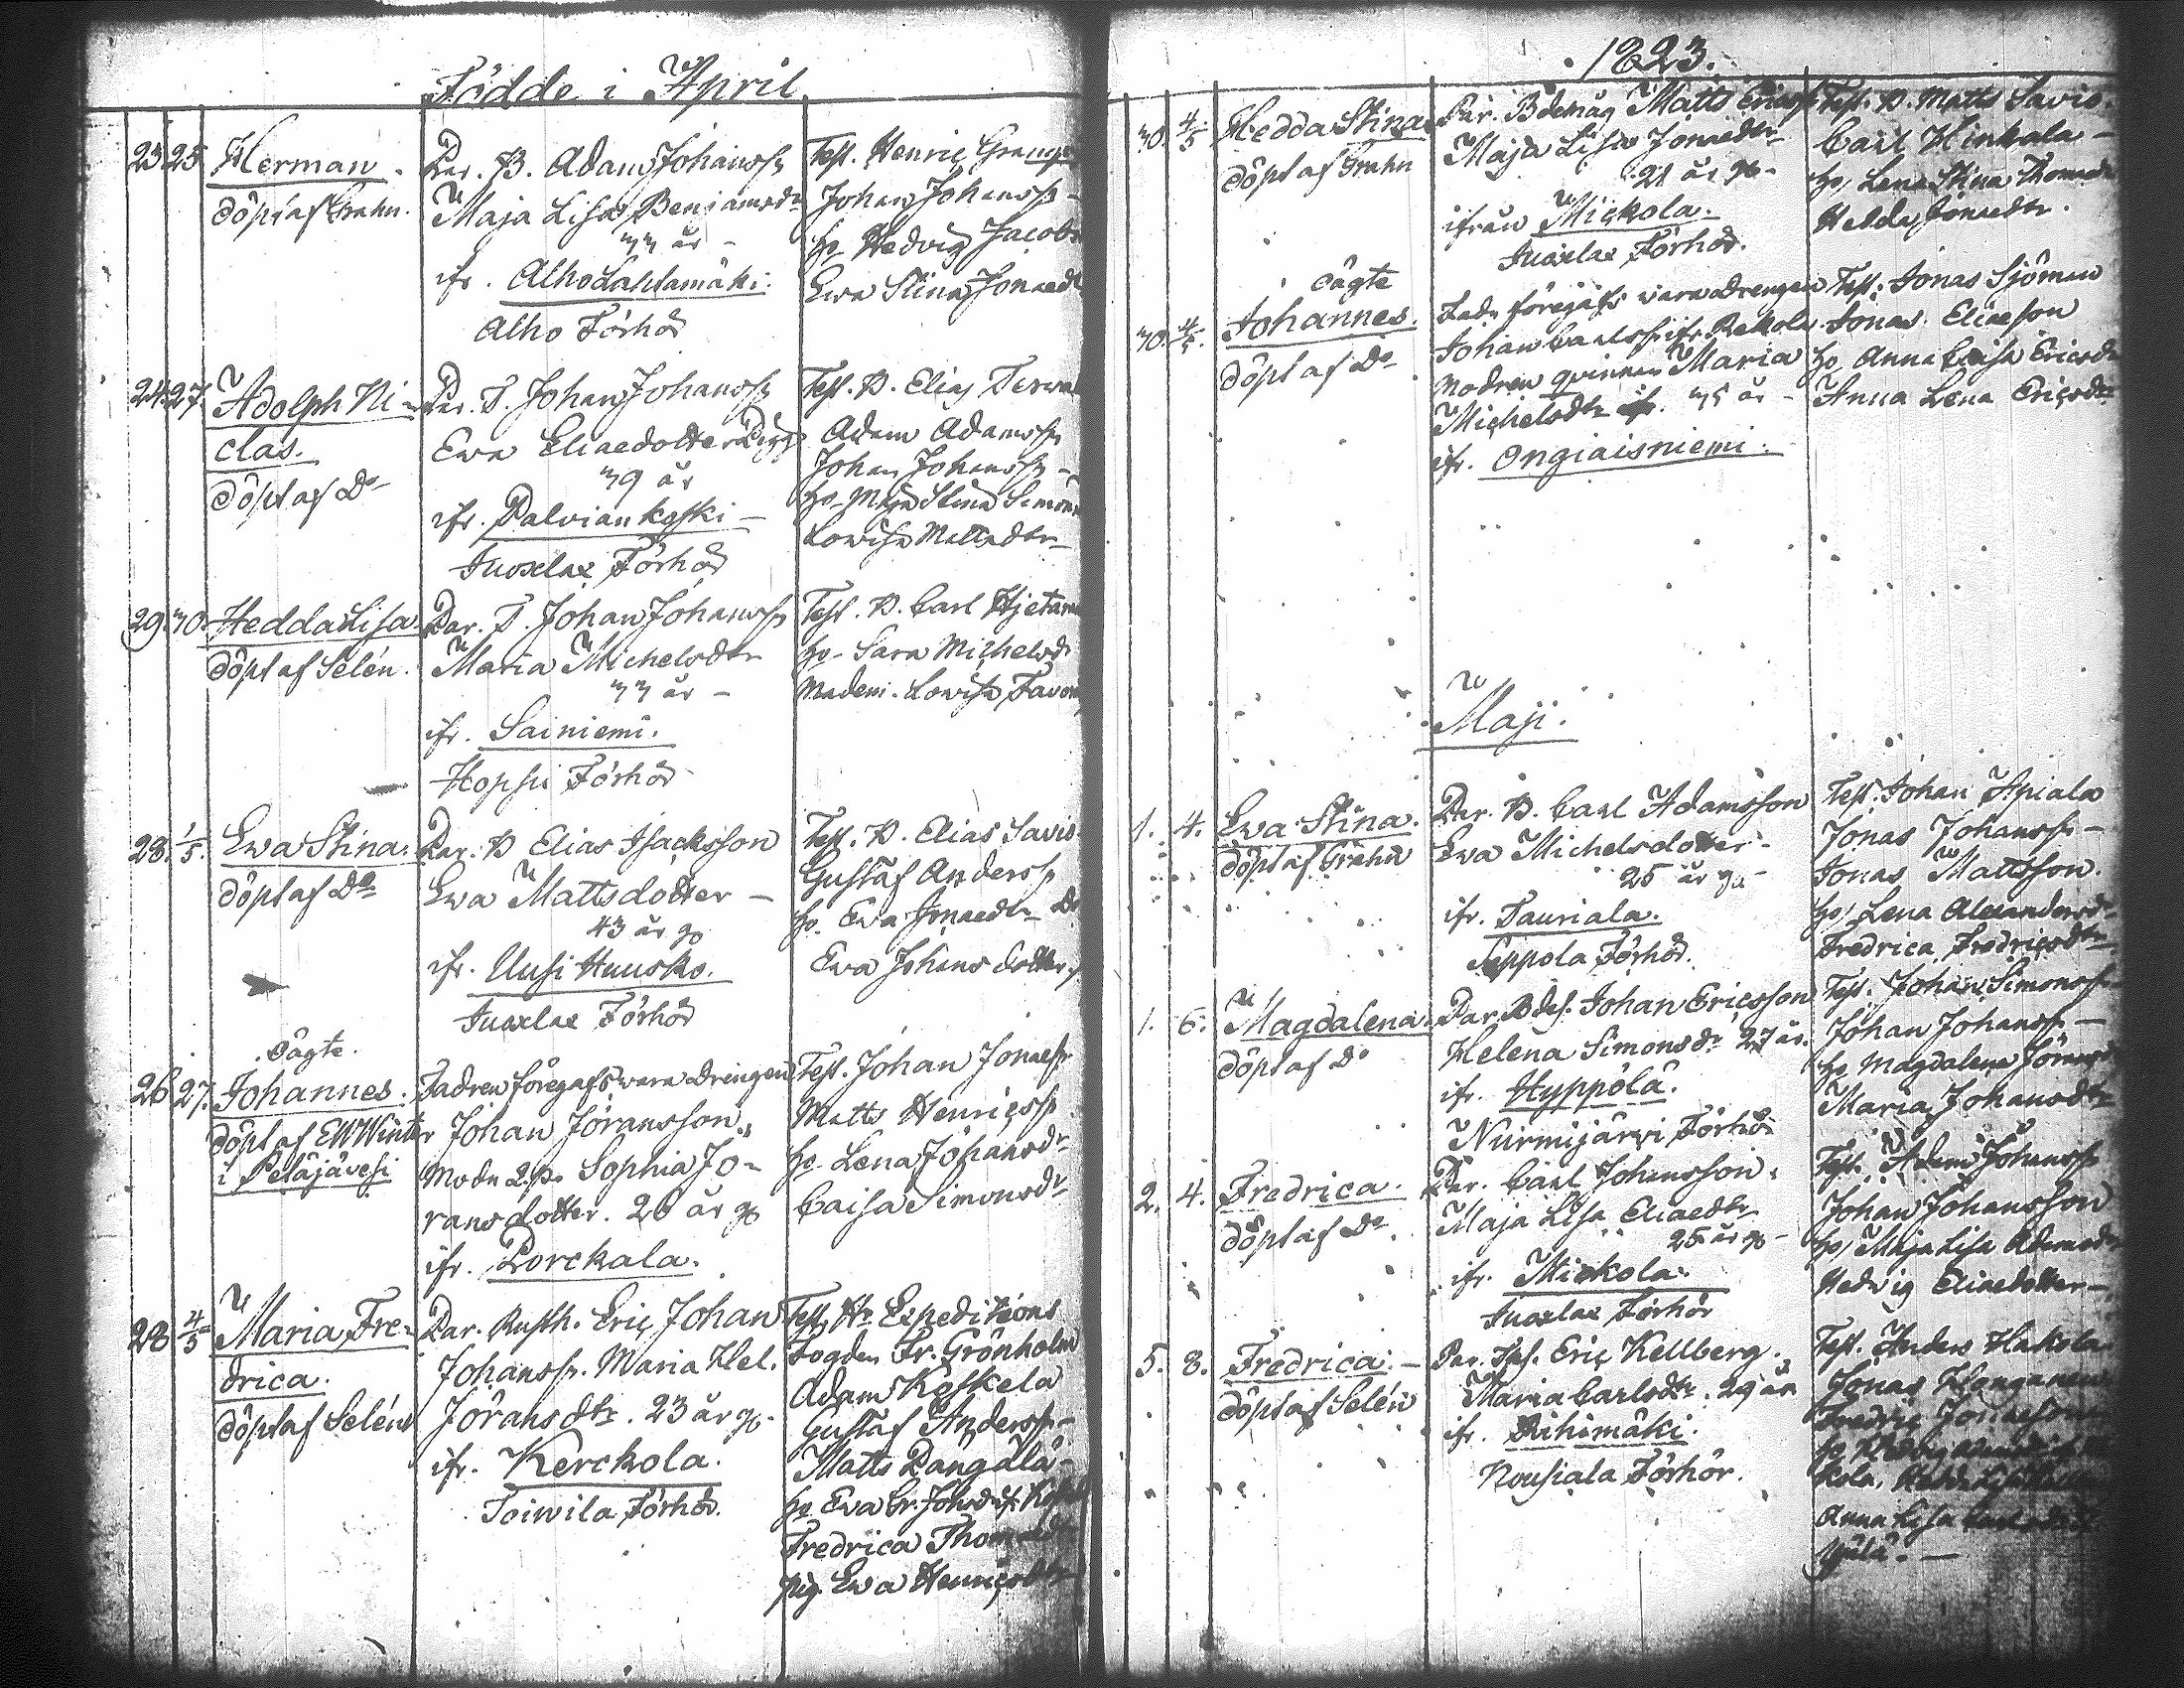 Födde i April
23 25 Herman.
döpt af Grahn.
Par. B. Adam Johanss.
Maja Lisa Benjamsdr
33 år -
ifr. Alho Lahdamäki.
Alho Förhör
Test. Henric
Johan Johanss. -
ho Hedvig Jacobs
Ewa Stina Jonaedt
24. 27. Adolph Ni-
clas.
döpt af Do
Par. T. Johan Johanss.
Ewa Eliaedotter
39 år
ifr. Palviankoski -
Juoxlax Förhör
Test. B. Elias
Adam Adamss.
Johan Johanss. -
ho Maja Stina Simons
Lowisa Mattsdtr
29. 30. Hedda Lisa.
döpt af Selén.
Par. T. Johan Johanss.
Maria Michelsdtr
33 år -
ifr. Sainiemi.
Hopsu Förhör
Test. B. Carl
ho - Sara Michelsdr
Madem. Lowisa
28. 1/5. Ewa Stina.
döpt af Do
Par. B Elias Isacksson
Ewa Mattsdotter -
43 år go
ifr. Uusi Huusko.
Juoxlax Förhör
Test. B. Elias Savio
Gustaf Anderss.
ho. Ewa Jonaedtr
Ewa Johansdotter
oägte.
26 27. Johannes.
döpt af EW Winter
i Peläjävesi
Fadren föregafs wara Drengen
Johan Jöransson.
Modn Sophia Jö-
ransdotter. 26 år go
ifr. Porckala.
Test. Johan Jonaess.
Matts Henricss.
ho. Lena Johansdr
Caisa Simonsdr
28 4/5 Maria Fre-
drica.
döpt af Selén
Par. Rusth. Eric Johan
Johanss. Maria Hel.
Jöransdtr. 23 år go.
ifr. Kerckola.
Toiwila Förhör.
Test. Hr Expeditions
Fogden Fr. Grönholm
Adam Koskela
Gustaf Anderss. -
Matts
ho Ewa
Fredrica
pig. Ewa Henricsdtr
1823.
30. 4/5 Hedda Stina
döpt af Grahn
Par. Bdemåg Matts Ericss.
Maja Lisa Jonaedtr
21 år go -
ifrån Mickola.
Juoxlax Förhör.
Test. B. Matts Savio.
Carl Hinkala -
ho, Lena Stina Thomaedr
Hedda Jonaedtr.
oägte
30. 4/5. Johannes.
döpt af Do
Fadn föregafs wara Drengen
Johan Carlss. ifr. Rekola.
Modren qvinnan Maria
Michelsdtr 35 år -
ifr. Ongiaisniemi.
Test. Jonas Sjöman
Jonas Eliaeson
ho Anna Caisa Ericsdr
Anna Lena Ericsdtr
Maji.
1. 4. Ewa Stina.
döpt af Grahn
Par. B. Carl Adamsson
Ewa Michelsdotter
25 år go -
ifr. Tauriala.
Seppola Förhör.
Test. Johan Apiala
Jonas Johanss. -
Jonas Mattsson.
ho, Lena Alexandersdr
Fredrica Fredricsdtr
1. 6. Magdalena.
döpt af Do
Par. Bdes. Johan Ericsson
Helena Simonsdr 27 år.
ifr. Hyppölä.
Nurmijärvi Förhör
Test. Johan Simonss.
Johan Johanss. -
ho Magdalena
Maria Johansdtr
2. 4. Fredrica.
döpt af Do.
Par. Carl Johansson.
Maja Lisa Eliaedtr
25 år go -
ifr. Mickola.
Juoxlax Förhör
Test. Adam Johanss.
Johan Johansson
ho, Maja Lisa Adamsdr
Hedwig Eliaedotter -
5. 8. Fredrica. -
döpt af Selén
Par. Eric Kellberg.
Maria Carlsdtr. 29 år
ifr. Rihimäki.
Nousiala Förhör.
Test. Anders Hakola
Jonas
Fredric Jonaeson
Anna Lisa